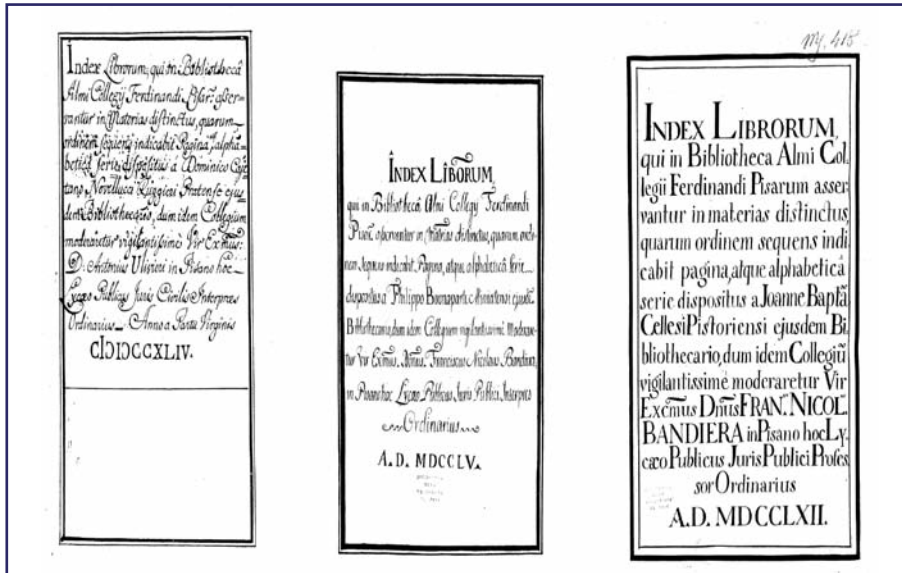 Index Librorum, qui in Bibliothecâ
Almi Collegij Ferdinandi Pisar: asser-
vantur in Materias distinctus, quarum
ordinem sequens indicabit Pagina, alpha-
beticâ serie dispositus à Dominico Caje-
tano Novellucci Pratense ejus
dem Bibliothecario, dum idem Collegium
moderaretur vigilantissimè Vir Exc̃mus:
D: Antonius Ulivieri in Pisano hoc
Lycæo Publicus Juris Civilis Interpres
Ordinarius Anno a Partu Virginis
CIƆIƆCCXLIV.
INDEX LIBRORUM,
qui in Bibliothecâ Almi Collegy Ferdinandi
asservantur in Materias distinctus, quarum ordi-
nem sequens indicabit Pagina, atque alphabeticâ serie
dispositus a Philippo Buonaparte ejusd:
Bibliothecario, dum idem Collegium vigilantissimè moderare-
tur Vir Exc̃mus. Franciscus Nicolaus Bandiera,
in Pisano hoc Lycæo Publicus Juris Publici Interpres
Ordinarius
A.D. MDCCLV.
My. 415
INDEX LIBRORUM,
qui in Bibliotheca Almi Col,
legii Ferdinandi Pisarum asser
vantur in materias distinctus,
quarum ordinem sequens indi
cabit pagina, atque alphabeticâ
serie dispositus a Joanne Baptã
Cellesi Pistoriensi ejusdem Bi,
bliothecario, dum idem Collegiũ
vigilantissimè moderaretur Vir
Exc̃mus Dñus FRAN: NICOL:
BANDIERA in Pisano hoc Ly,
cæo Publicus Juris Publici Profes
sor Ordinarius
A.D. MDCCLXII.